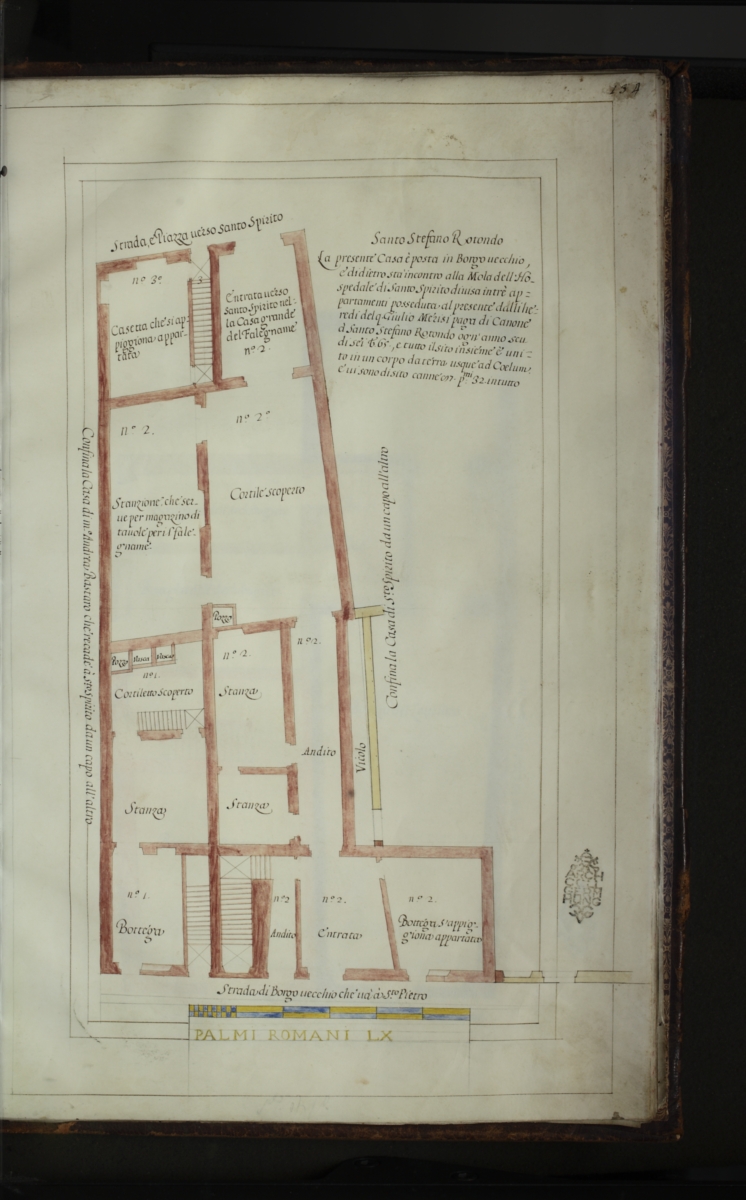 154
Strada, e Piazza uerso Santo Spirito
Santo Stefano Rotondo
La presente Casa è posta in Borgo uecchio,
e di dietro sta incontro alla Mola dell'Ho-
spedale di Santo Spirito diuisa in trè ap-
partamenti posseduta al presente dalli he-
redi del q. Giulio Merisi paga di Canone
a Santo Stefano Rotondo ogn'anno scu-
di sei, e tutto il sito insieme è uni-
to in un corpo da terra usque ad Coelum,
e ui sono di sito canne pmi 32 in tutto
no. 3o
Casetta che si ap-
piggiona appar-
tata
Entrata uerso
Santo Spirito nel-
la Casa grande
del Falegname
no. 2.
no. 2.
no. 2o
Stanzione che ser-
ue per magazino di
tauole per il fale-
gname
Cortile scoperto
Confina la Casa di Andrea Bastaro che recade à Sto Spirito da un capo all'altro
Confina la Casa di Sto Spirito da un capo all'altro
Pozzo
Pozzo
Vasca
Vasca
no 1.
Cortiletto scoperto
no. 2.
Stanza
no. 2.
Andito
Vicolo
Stanza
Stanza
no. 1.
Bottega
no 2
Andito
no. 2.
Entrata
no. 2.
Bottega s'appig-
giona appartata
Strada di Borgo uecchio che uà à Sto Pietro
PALMI ROMANI LX